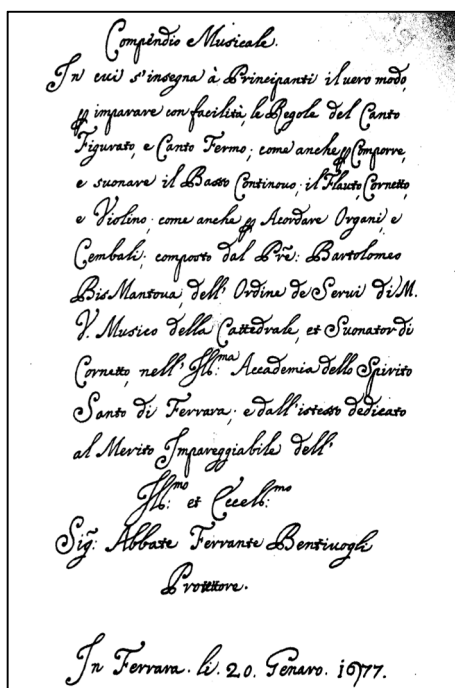 Compendio Musicale.
In cui s'insegna à Principanti il uero modo,
ꝑ imparare con facilità, le Regole del Canto
Figurato, e Canto Fermo; come anche ꝑ Comporre,
e suonare il Basso Continouo; il Flauto, Cornetto,
e Violino; come anche ꝑ Acordare Organi, e
Cembali; composto dal Prẽ: Bartolomeo
BisMantoua, dell' Ordine de Serui di M.
V. Musico della Cattedrale, et Suonator di
Cornetto, nell' Jll:ma Accademia dello Spirito
Santo di Ferrara; e dall' istesso dedicato
al Merito Impareggiabile dell'
Jll:mo et Eccell:mo
Sig̃: Abbate Ferrante Bentiuogli
Protettore.
In Ferrara. li. 20. Genaro. 1677.